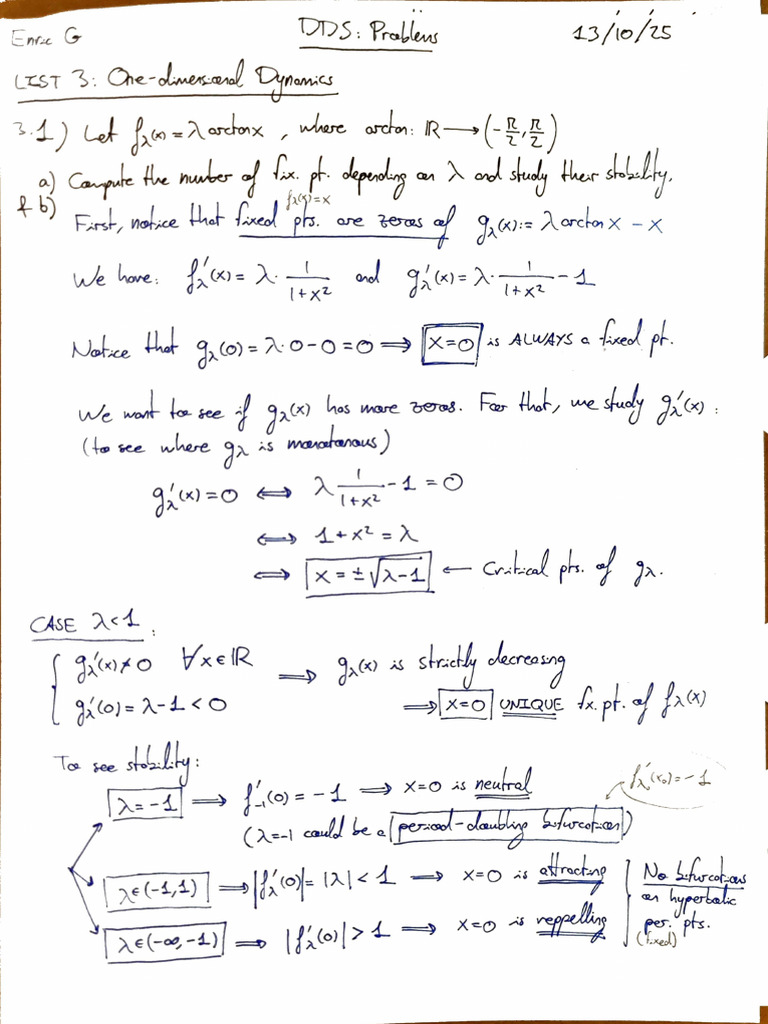 Enric G
DDS: Problems
13/10/25
LIST 3: One-dimensional Dynamics
3.1) Let fλ(x) = λ arctan x , where arctan: ℝ ⟶ (-π/2, π/2)
a) Compute the number of fix. pt. depending on λ and study their stability.
& b)
fλ(x)=x
First, notice that fixed pts. are zeros of gλ(x) := λ arctan x - x
We have: fλ'(x) = λ · 1/(1+x²) and gλ'(x) = λ · 1/(1+x²) - 1
Notice that gλ(0) = λ·0 - 0 = 0 ⟹ x=0 is ALWAYS a fixed pt.
We want to see if gλ(x) has more zeros. For that, we study gλ'(x) :
(to see where gλ is monotonous)
gλ'(x) = 0 ⟺ λ 1/(1+x²) - 1 = 0
⟺ 1 + x² = λ
⟺ x = ±√(λ-1) ← Critical pts. of gλ.
CASE λ<1 :
{ gλ'(x) ≠ 0 ∀x∈ℝ ⟹ gλ(x) is strictly decreasing
gλ'(0) = λ-1 < 0 ⟹ x=0 UNIQUE fx. pt. of fλ(x)
To see stability:
fλ'(x₀) = -1
λ=-1 ⟹ f'₋₁(0) = -1 ⟹ x=0 is neutral
(λ=-1 could be a period-doubling bifurcation)
λ∈(-1,1) ⟹ |fλ'(0)| = |λ| < 1 ⟹ x=0 is attracting
λ∈(-∞,-1) ⟹ |fλ'(0)| > 1 ⟹ x=0 is reppelling
No bifurcations
on hyperbolic
per. pts.
(fixed)